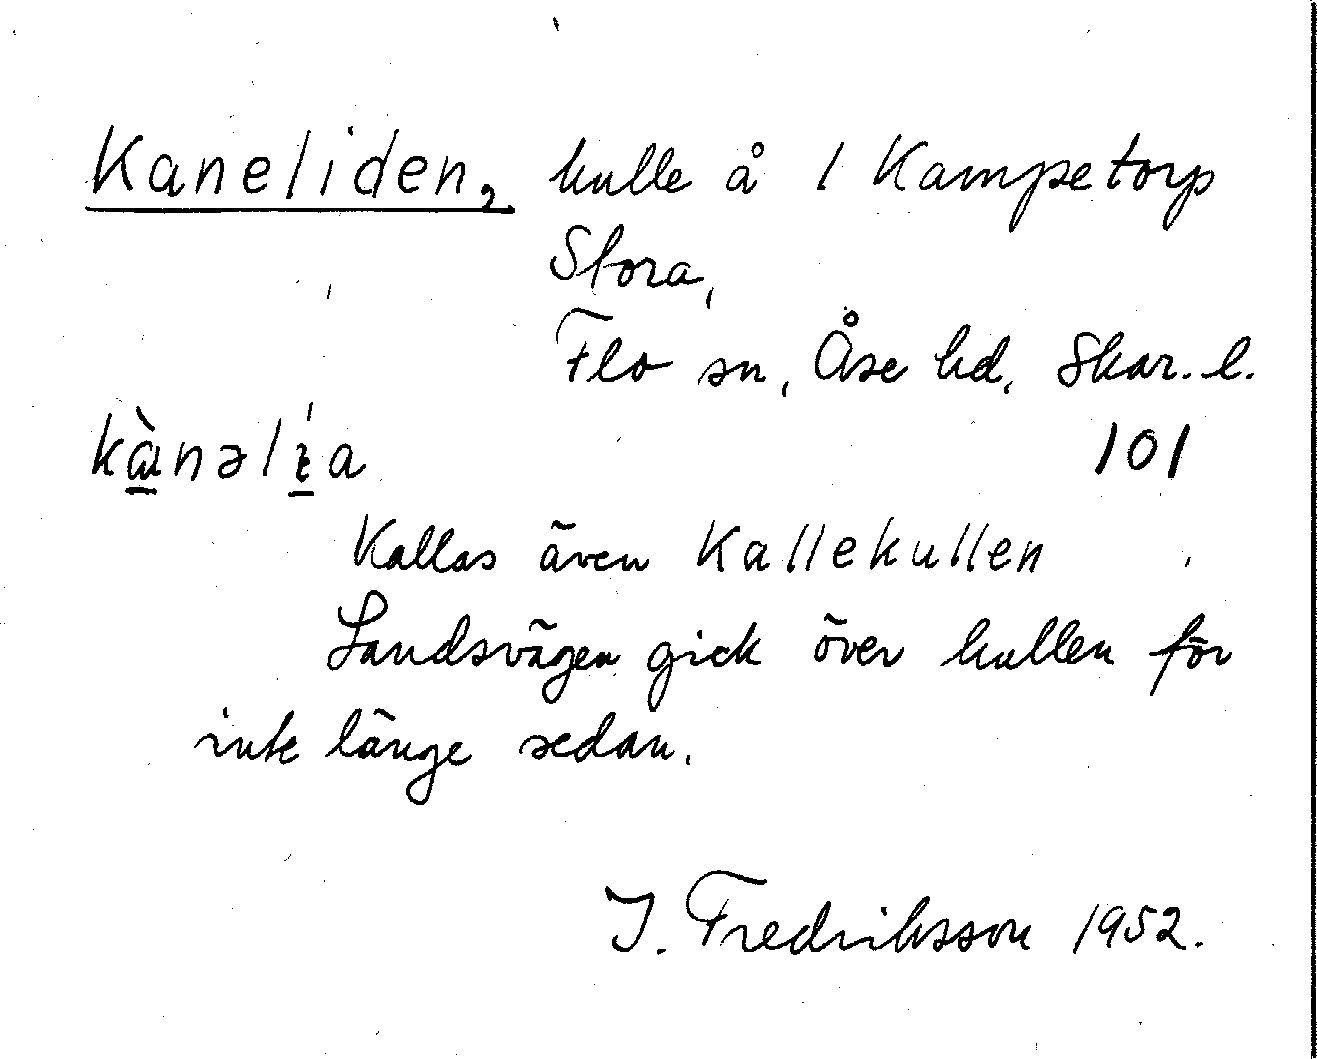 Kaneliden, hulle å 1 Kampetorp
Stora,
Flo sn, Åse hd, Skar. l.
101
Kallas även Kallekullen
Landsvägen gick över kullen för
inte länge sedan.
I. Fredriksson 1952.